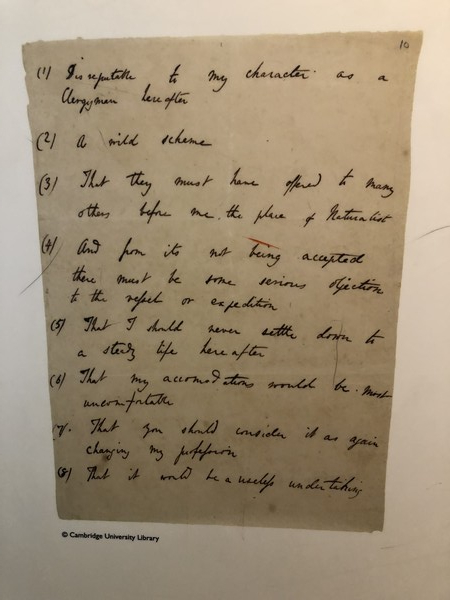 10
(1) Disreputable to my character as a
Clergyman hereafter
(2) A wild scheme
(3) That they must have offered to many
others before me, the place of Naturalist
(4) And from its not being accepted
there must be some serious objection
to the vessel or expedition
(5) That I should never settle down to
a steady life hereafter
(6) That my accomodations would be most
uncomfortable
(7). That you should consider it as again
changing my profession
(8) That it would be a useless undertaking
© Cambridge University Library